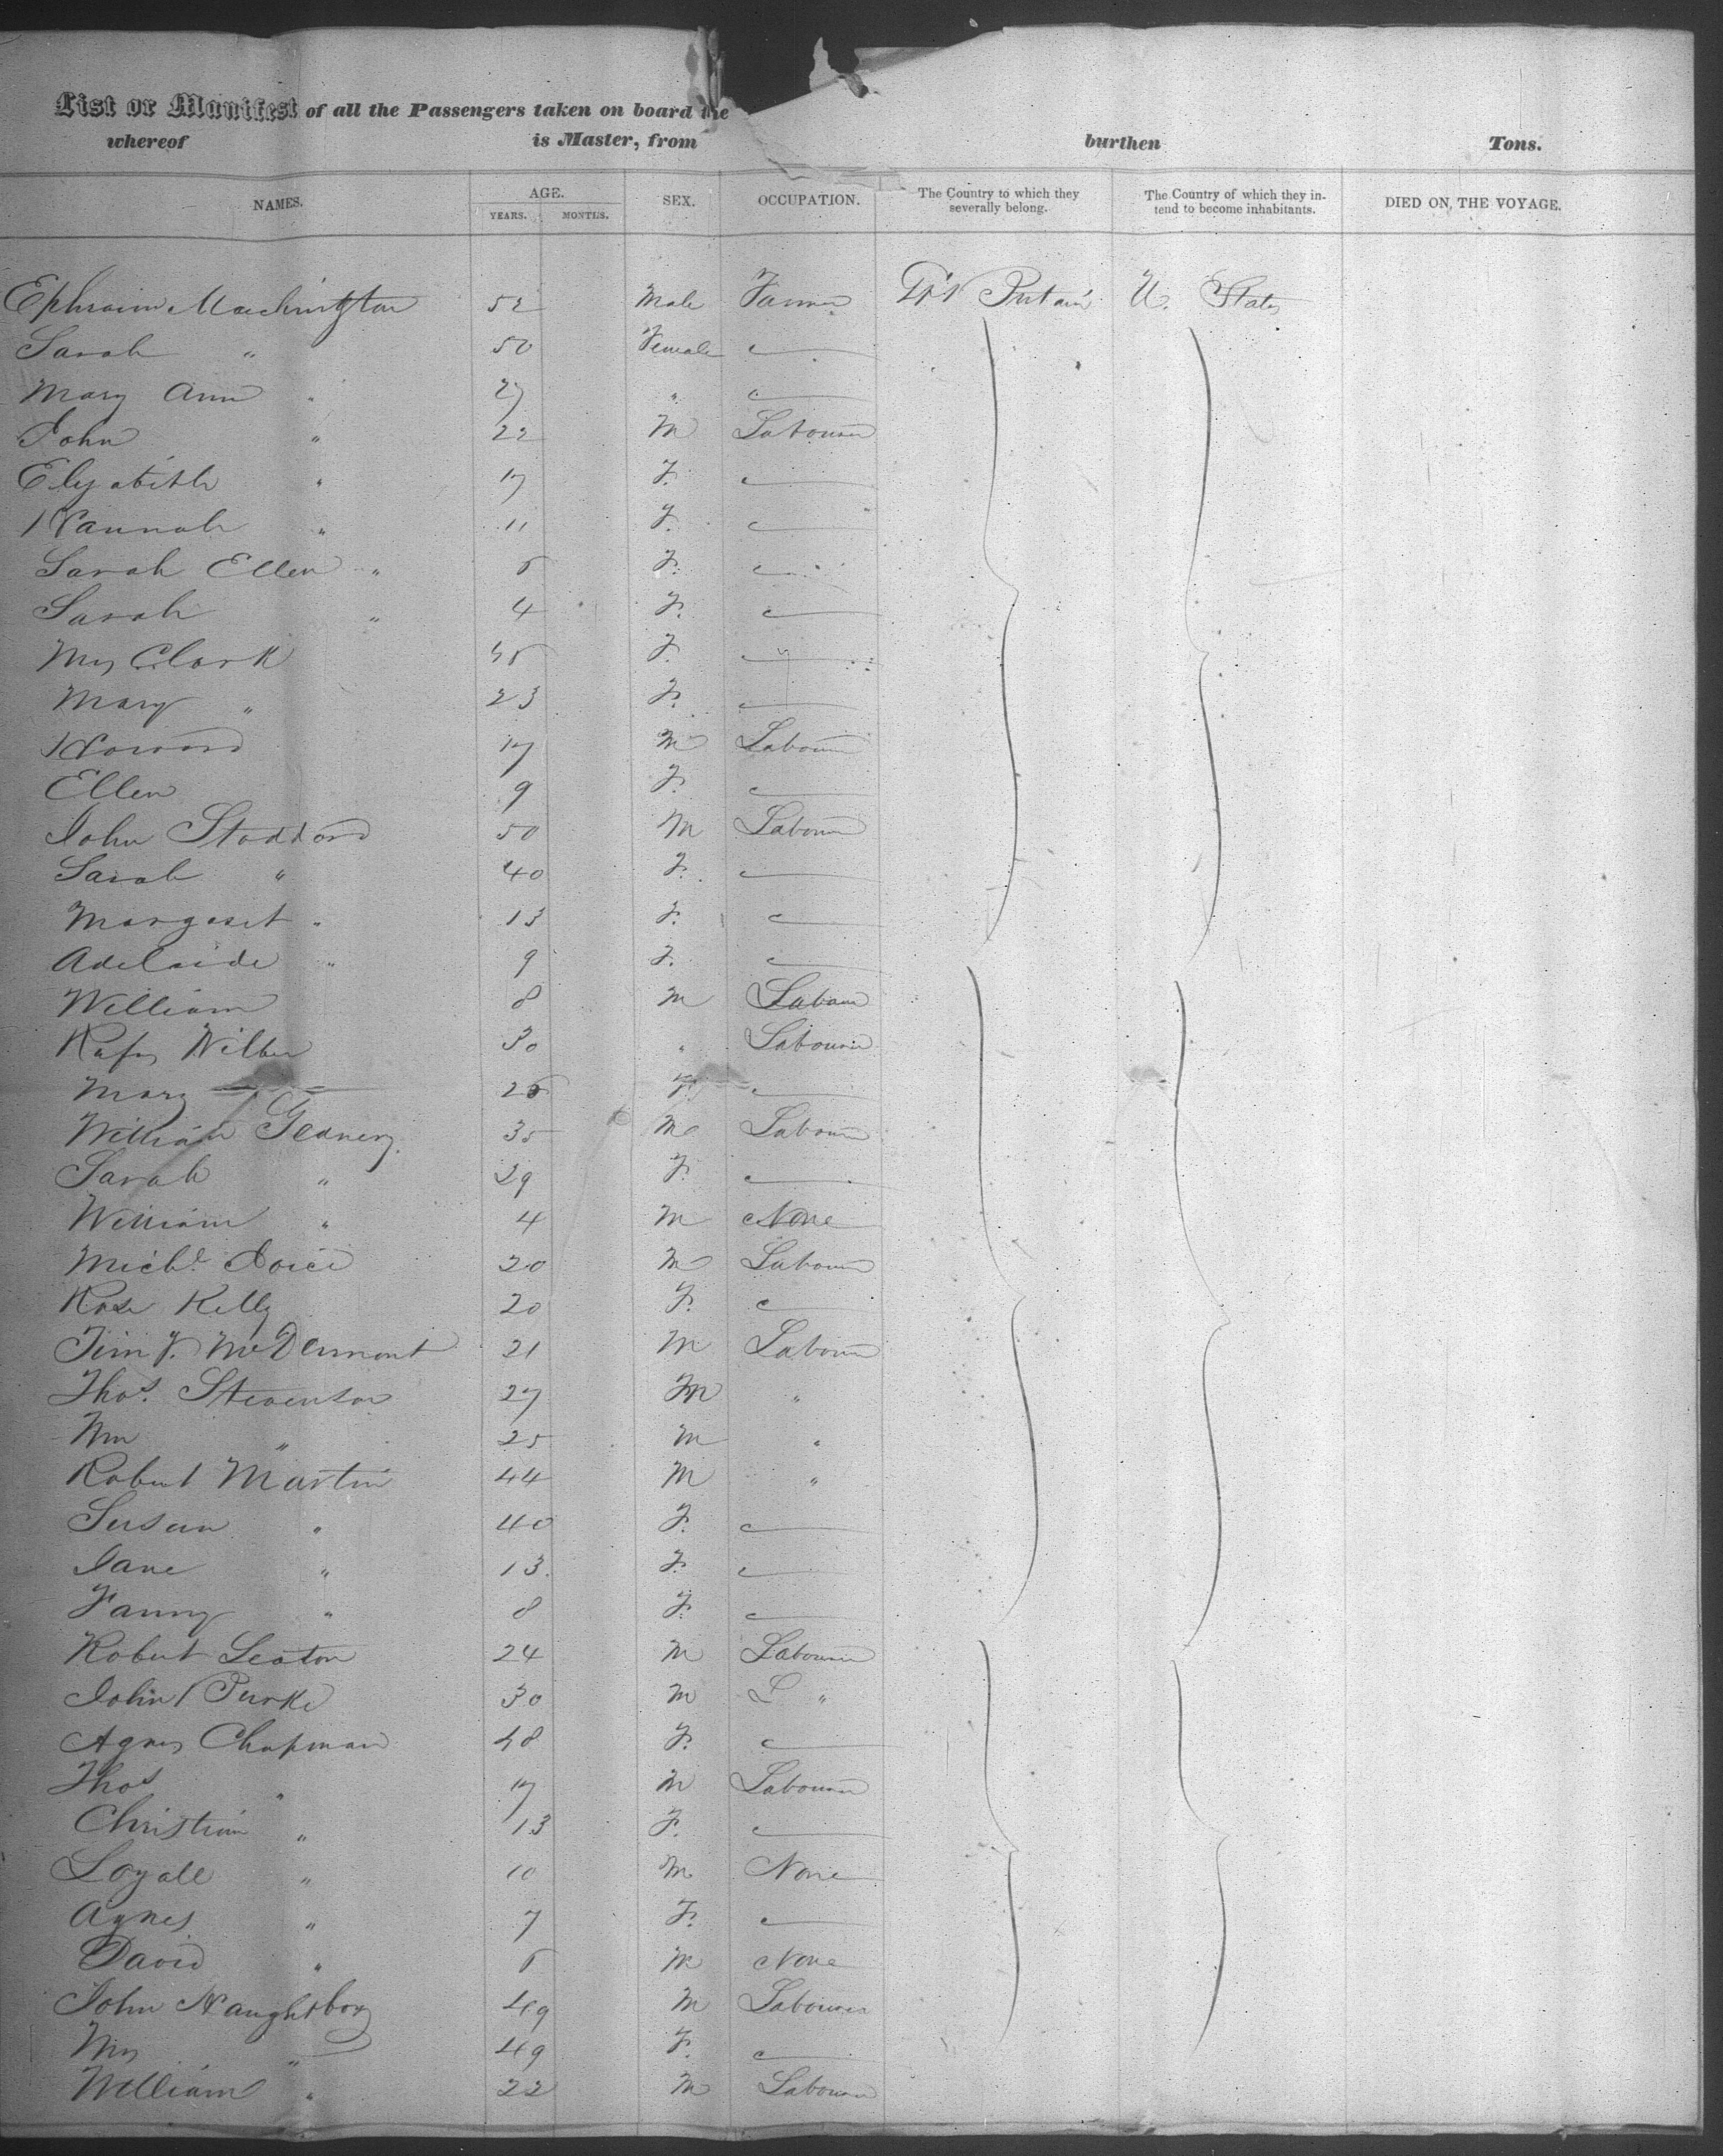 List or Manifest of all the Passengers taken on board the
whereof is Master, from burthen Tons.
NAMES. AGE. YEARS. MONTHS. SEX. OCCUPATION. The Country to which they severally belong. The Country of which they intend to become inhabitants. DIED ON THE VOYAGE.
Ephraim 52 Male Farmer Grt Britain U. States
Sarah " 50 Female —
Mary Ann " 27 " —
John " 22 M Labourer
Elizabeth " 17 F. —
Hannah " 11 F. —
Sarah Ellen " 6 F. —
Sarah " 4 F. —
Mrs Clark 45 F. —
Mary " 23 F. —
Howard 17 M Labourer
Ellen 9 F. —
John Stoddard 50 M Labourer
Sarah " 40 F. —
Margaret " 13 F. —
Adelaide " 9 F. —
William 8 M Labour
Rufus Wilber 30 " Labourer
Mary — F —
William Gedney 35 M Labourer
Sarah " 29 F. —
William " 4 M None
Michl. Joice 20 M Labourer
Rose Kelly 20 F. —
Tim y. McDermont 21 M Labourer
Thos. Stevenson 27 M "
Wm " 25 M "
Robert Martin 44 M "
Susan " 40 F. —
Jane " 13 F. —
Fanny " 8 F. —
Robert Seaton 24 M Labourer
John Burke 30 M L "
Agnes Chapman 48 F. —
Thos " 17 M Labourer
Christian " 13 F. —
Loyall " 10 M None
Agnes " 7 F. —
David " 5 M None
John Naughtboy 49 M Labourer
Mrs " 49 F. —
William " 22 M Labourer